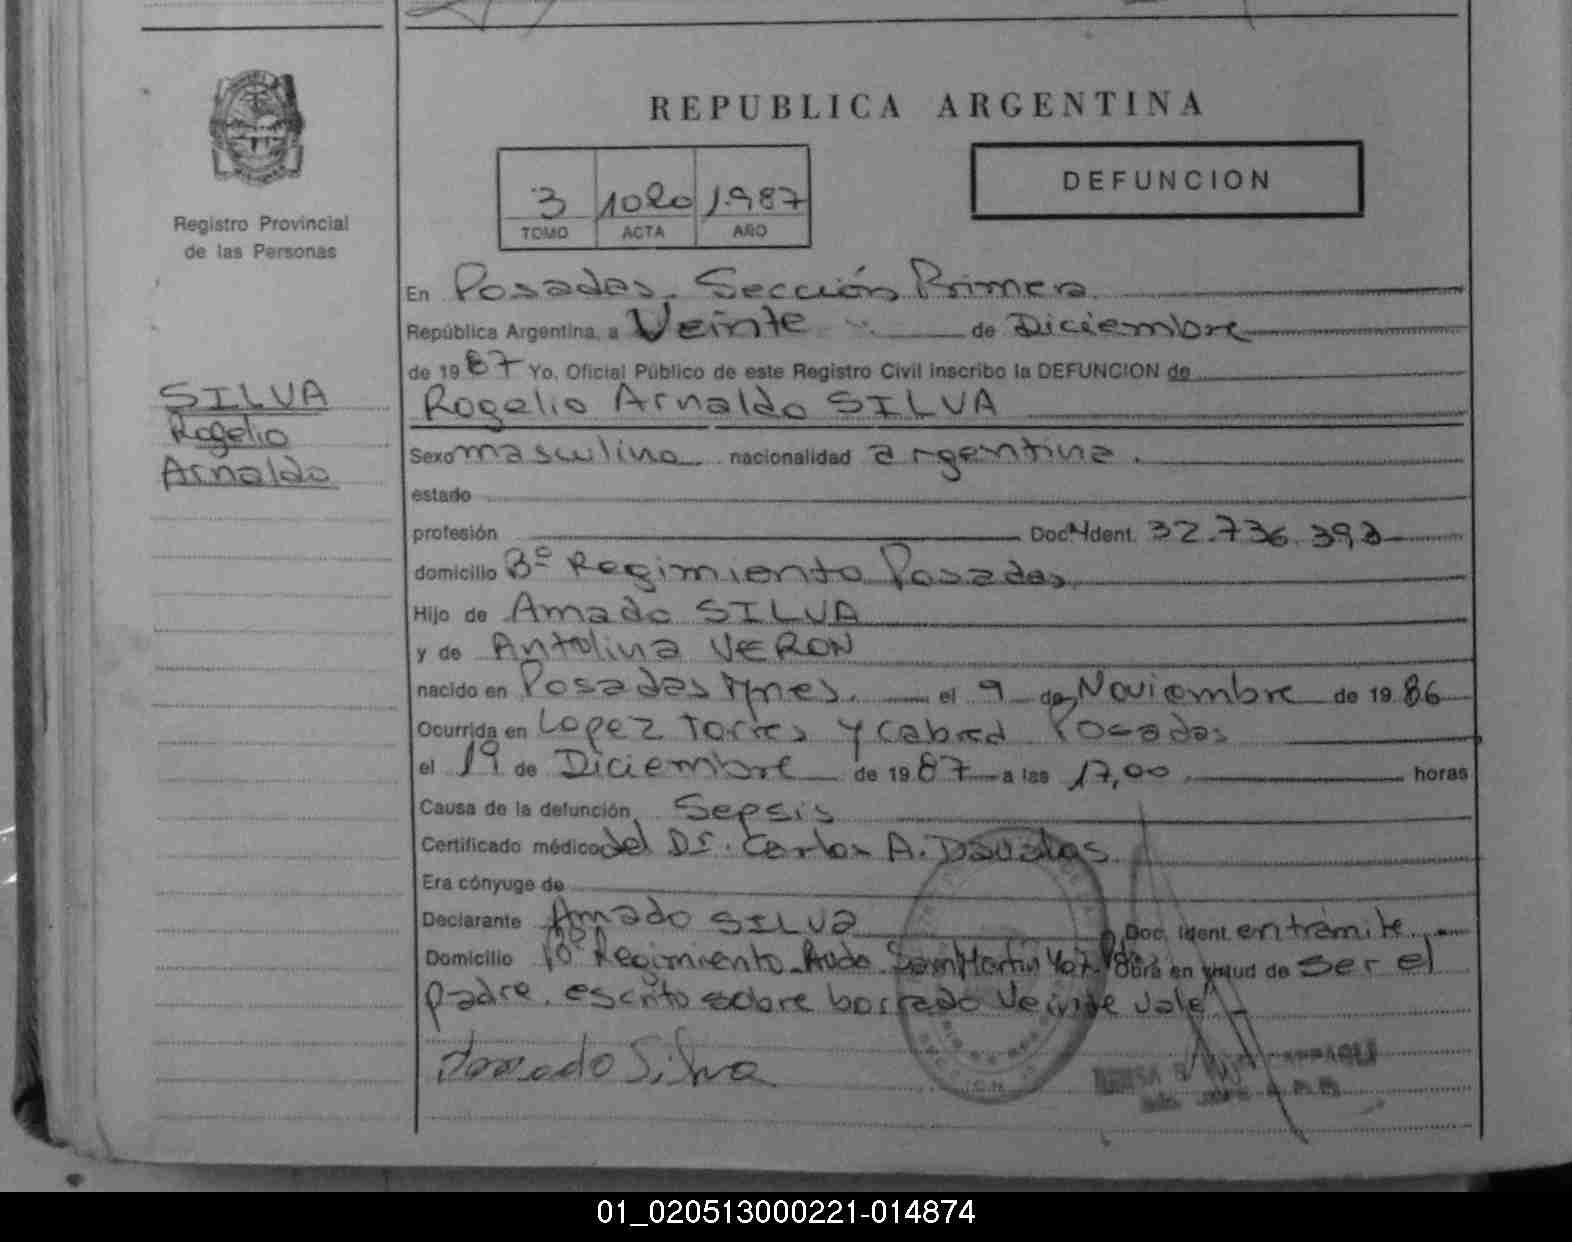 REPUBLICA ARGENTINA
DEFUNCION
3 1020 1.987
TOMO ACTA AÑO
Registro Provincial
de las Personas
SILVA
Rogelio
Arnaldo
En Posadas, Sección Primera
República Argentina, a Veinte de Diciembre
de 1987 Yo, Oficial Público de este Registro Civil inscribo la DEFUNCION de
Rogelio Arnaldo SILVA
Sexo masculino nacionalidad argentina.
estado
profesión Doc. Ident. 32.736.392
domicilio 3º Regimiento Posadas
Hijo de Amado SILVA
y de Antolina VERON
nacido en Posadas Mnes. el 9 de Noviembre de 1986
Ocurrida en Lopez Torres y Cabred Posadas
el 19 de Diciembre de 1987 a las 17,00 horas
Causa de la defunción, Sepsis
Certificado médico del Dr. Carlos A. Davalos
Era cónyuge de
Declarante Amado SILVA Doc. Ident. en trámite
Domicilio Regimiento Avda. San Martin Obra en virtud de ser el
padre. escrito sobre borrado Veinte vale
Amado Silva
01_020513000221-014874